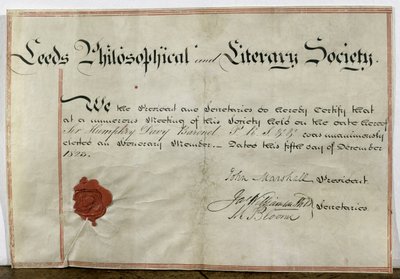 Leeds Philosophical and Literary Society.
We the President and Secretaries do hereby Certify that
at a numerous Meeting of this Society held on the date hereof
Sir Humphry Davy Baronet P R S &c was unanimously
elected an Honorary Member. Dated this fifth day of December
1823.
John Marshall President
Williamson Secretaries